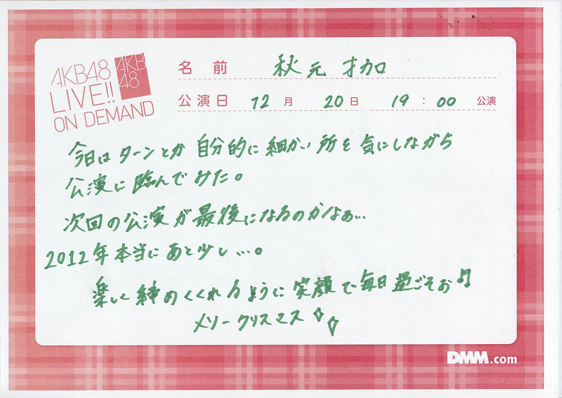 AKB48
LIVE!!
ON DEMAND
AKB
48
名前 秋元才加
公演日 12月 20日 19:00 公演
今日はターンとか自分的に細かい所を気にしながら
公演に臨んでみた。
次回の公演が最後になるのかなぁ…
2012年本当にあと少し…。
楽しく締めくくれるように笑顔で毎日過ごそお♫
メリークリスマス
DMM.com